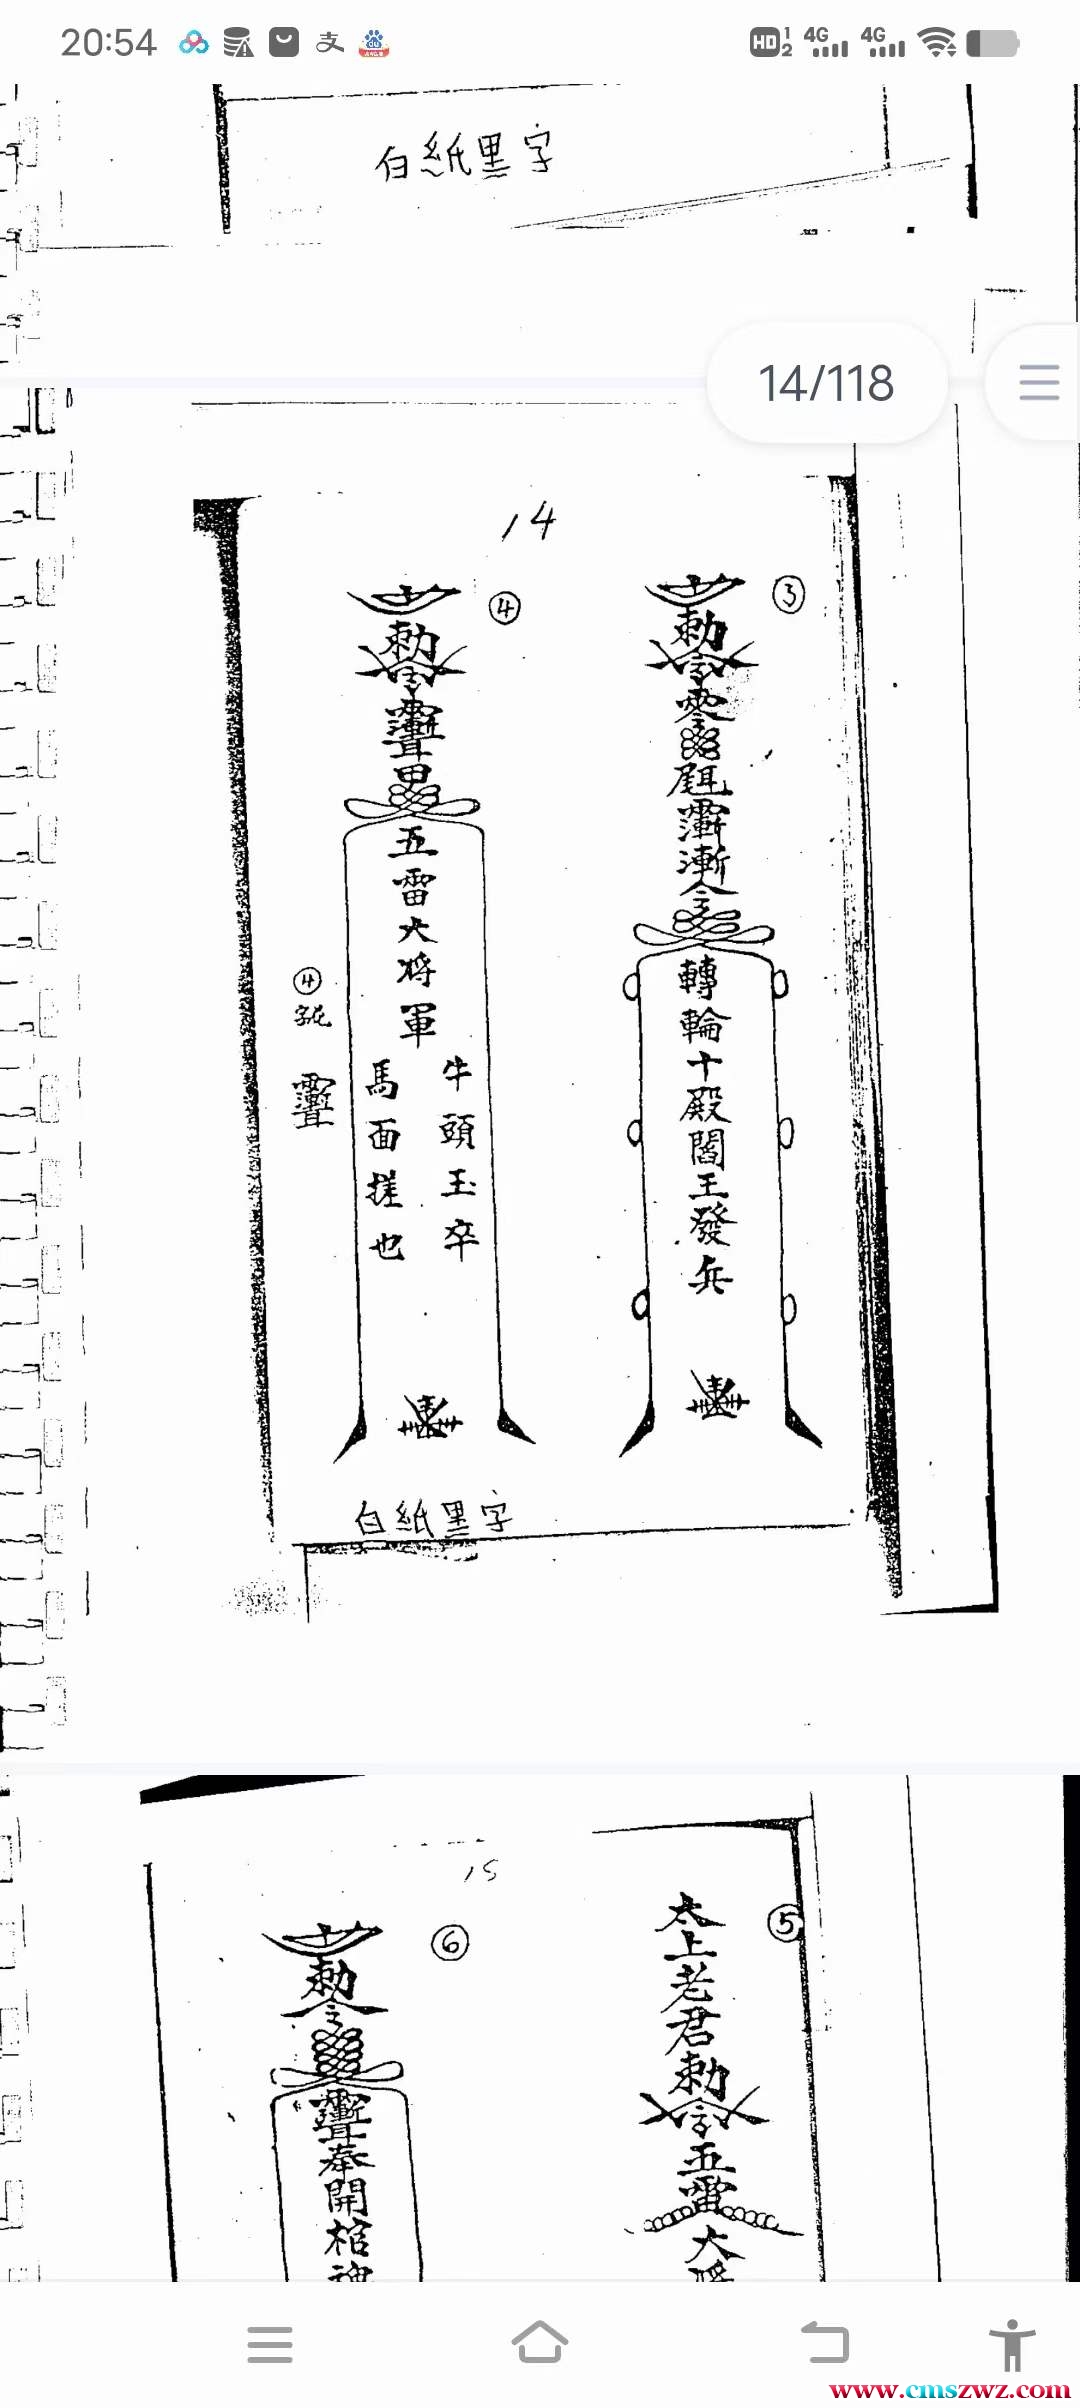 20:54
HD 1 2 4G 4G
白紙黑字
14/118
14
③
勅令
轉輪十殿閻王發兵
④
勅令
五雷大将軍
牛頭玉卒
馬面搓也
④
白紙黑字
15
⑤
太上老君勅令五雷大将
⑥
勅令
奉開棺魂
www.cmszwz.com